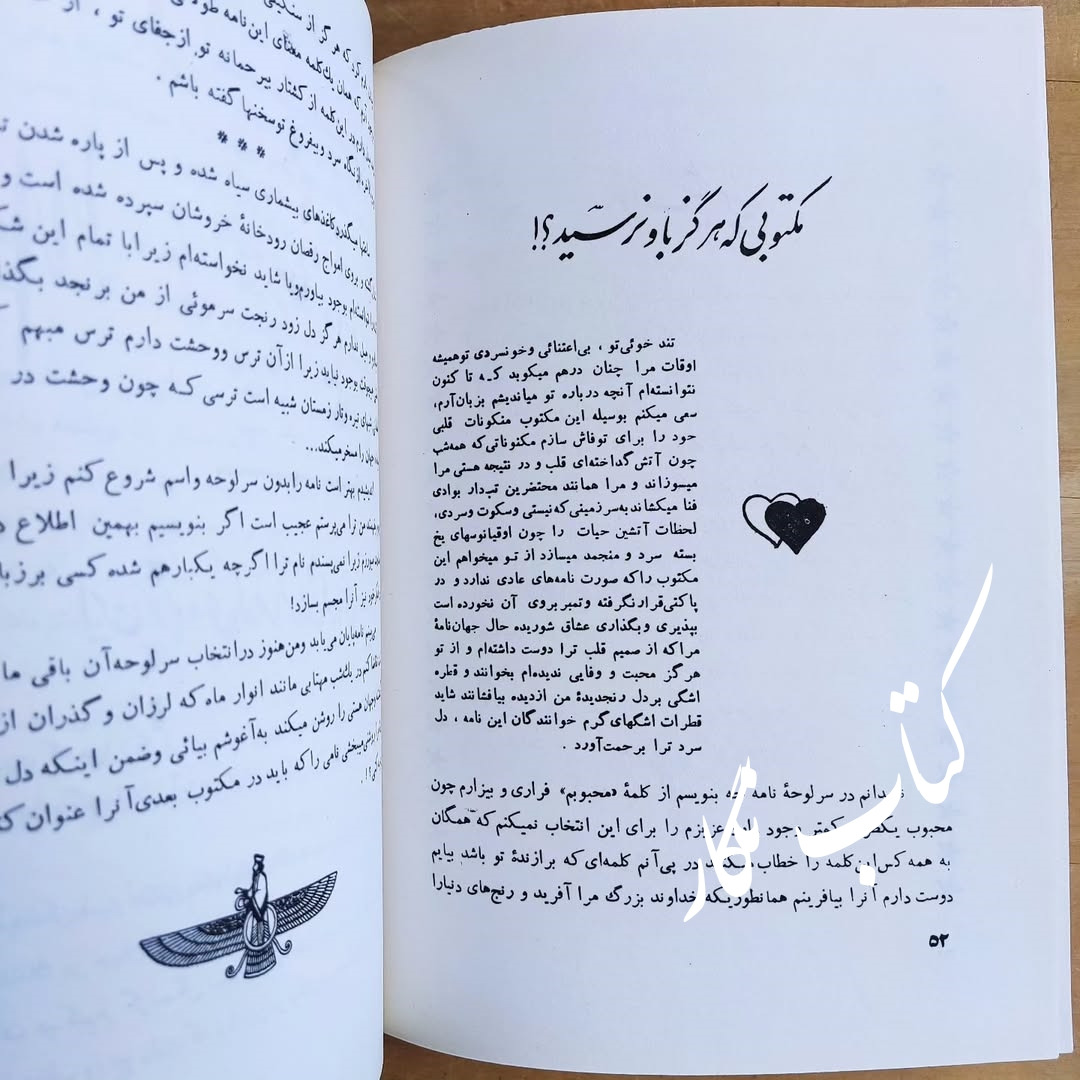 مکتوبی که هرگز باو نرسید؟!
تند خوئی‌تو ، بی‌اعتنائی وخونسردی توهمیشه
اوقات مرا چنان درهم میکوبد که تا کنون
نتوانسته‌ام آنچه درباره تو میاندیشم بزبان‌آرم،
سعی میکنم بوسیله این مکتوب منکونات قلبی
حود را برای توفاش سازم مکنوناتی‌که همه‌شب
چون آتش گداخته‌ای قلب و در نتیجه هستی مرا
میسوزاند و مرا همانند محتضرین تب‌دار بوادی
فنا میکشاند به‌سرزمینی‌که‌نیستی وسکوت وسردی،
لحظات آتشین حیات را چون اوقیانوسهای یخ
بسته سرد و منجمد میسازد از تو میخواهم این
مکتوب راکه صورت نامه‌های عادی ندارد و در
پاکتی‌قرارنگرفته وتمبربروی آن نخورده است
بپذیری وبگذاری عشاق شوریده حال جهان‌نامهٔ
مراکه از صمیم قلب ترا دوست داشته‌ام و از تو
هرگز محبت و وفایی ندیده‌ام بخوانند و قطره
اشگی بردل رنجدیدهٔ من ازدیده بیافشانند شاید
قطرات اشگهای گرم خوانندگان این نامه ، دل
سرد ترا برحمت‌آورد .
در سرلوحهٔ نامه چه بنویسم از کلمهٔ «محبوبم» فراری و بیزارم چون
محبوب وجود عزیزم را برای این انتخاب نمیکنم که همگان
به همه کس‌این‌کلمه را خطاب میکنند در پی‌آنم کلمه‌ای که برازندهٔ تو باشد بیابم
دوست دارم آنرا بیافرینم همانطوریکه خداوند بزرگ مرا آفرید و رنج‌های دنیارا
۵۲
همان یك‌کلمه معنای این نامه
این کلمه از کشتار بیرحمانه تو ازجفای تو ، از
نگاه سرد وبیفروغ توسخنها گفته باشم .
***
میگذردکاغذهای بیشماری سیاه شده و پس از پاره شدن
و بروی امواج رقصان رودخانهٔ خروشان سپرده شده است و
بوجود بیاورم‌ویا شاید نخواسته‌ام زیرابا تمام این
ندارم هرگز دل زود رنجت سرموئی از من برنجد
بوجود نیاید زیرا ازآن ترس ووحشت دارم ترس مبهم
شبهای تیره وتار زمستان شبیه است ترسی که چون وحشت در
را مسخرمیکند...
بهتر است نامه رابدون سرلوحه واسم شروع کنم زیرا
من ترا می‌پرستم عجیب است اگر بنویسیم بهمین اطلاع
زیرا نمی‌پسندم نام ترا اگرچه یکبارهم شده کسی
نیز آنرا مجسم بسازد!
نامه‌پایان می‌یابد ومن‌هنوز درانتخاب سرلوحه‌آن باقی
در یك‌شب مهتابی مانند انوار ماه که لرزان و گذران از
هستی را روشن میکند به‌آغوشم بیائی وضمن اینکه دل
نامی راکه باید در مکتوب بعدی آنرا عنوان
کتاب نگار